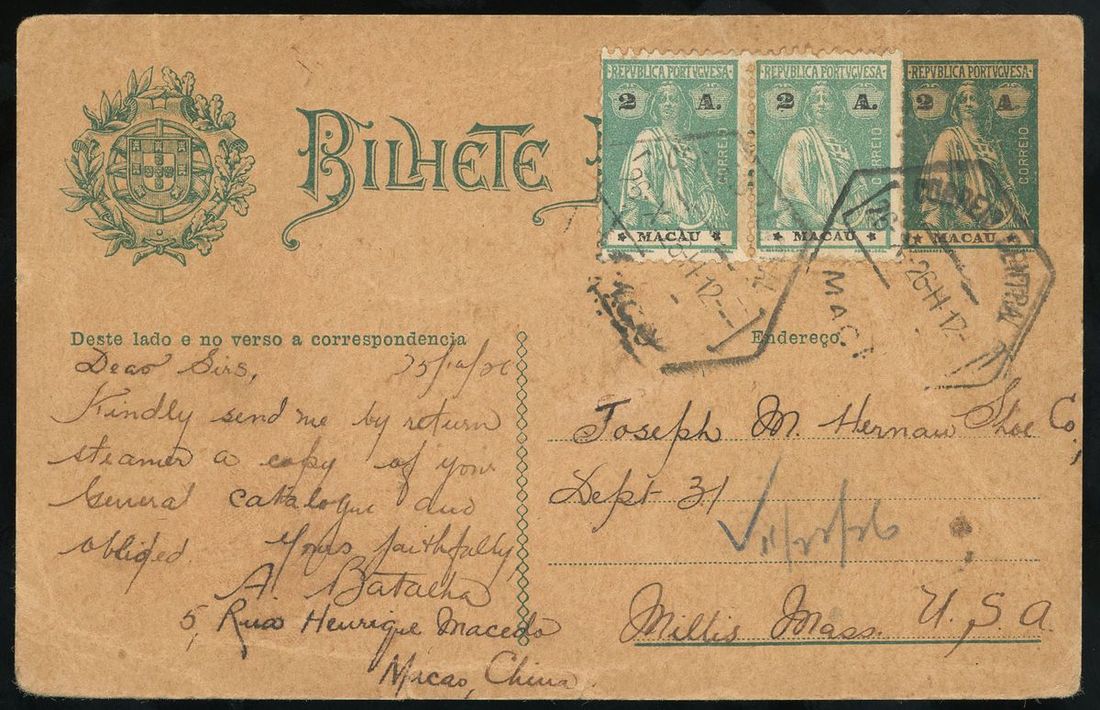 BILHETE
REPVBLICA PORTVGVESA
2 A.
CORREIO
MACAU
REPVBLICA PORTVGVESA
2 A.
CORREIO
MACAU
REPVBLICA PORTVGVESA
2 A.
CORREIO
MACAU
CENTRAL
26-11-12-
Deste lado e no verso a correspondencia
Endereço
Dear Sirs,
Kindly send me by return
steamer a copy of your
General catalogue and
obliged
Yours faithfully,
A. Batalha
5, Rua Henrique Macedo
Macao, China.
Joseph M. Hernau Shoe Co,
Dept 31
Millis Mass. U. S. A.